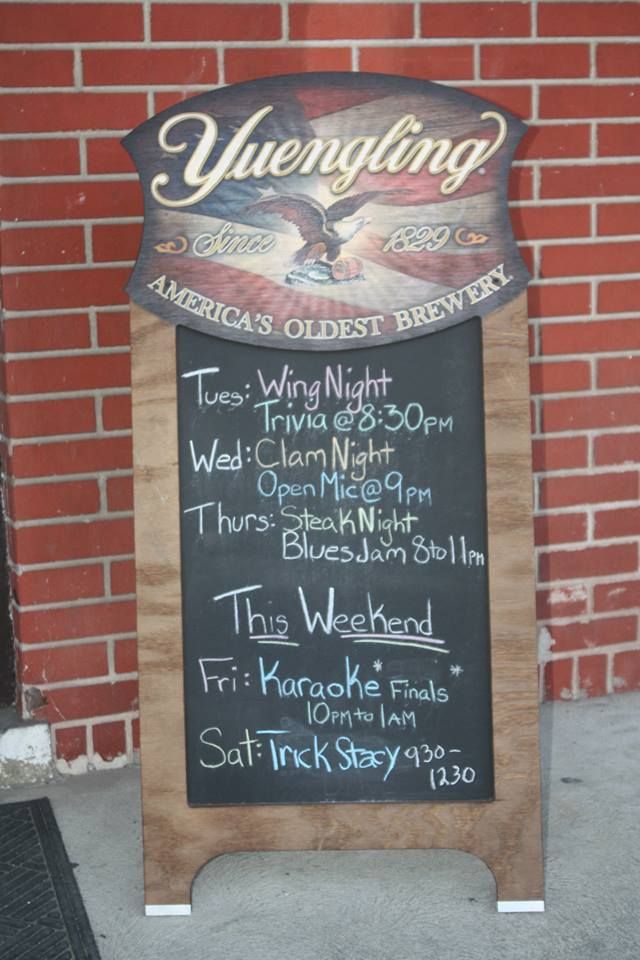 Yuengling
Since 1829
AMERICA'S OLDEST BREWERY
Tues: Wing Night
Trivia @ 8:30PM
Wed: Clam Night
Open Mic @ 9PM
Thurs: Steak Night
Blues Jam 8 to 11PM
This Weekend
Fri: Karaoke * Finals *
10PM to 1AM
Sat: Trick Stacy 930-
1230